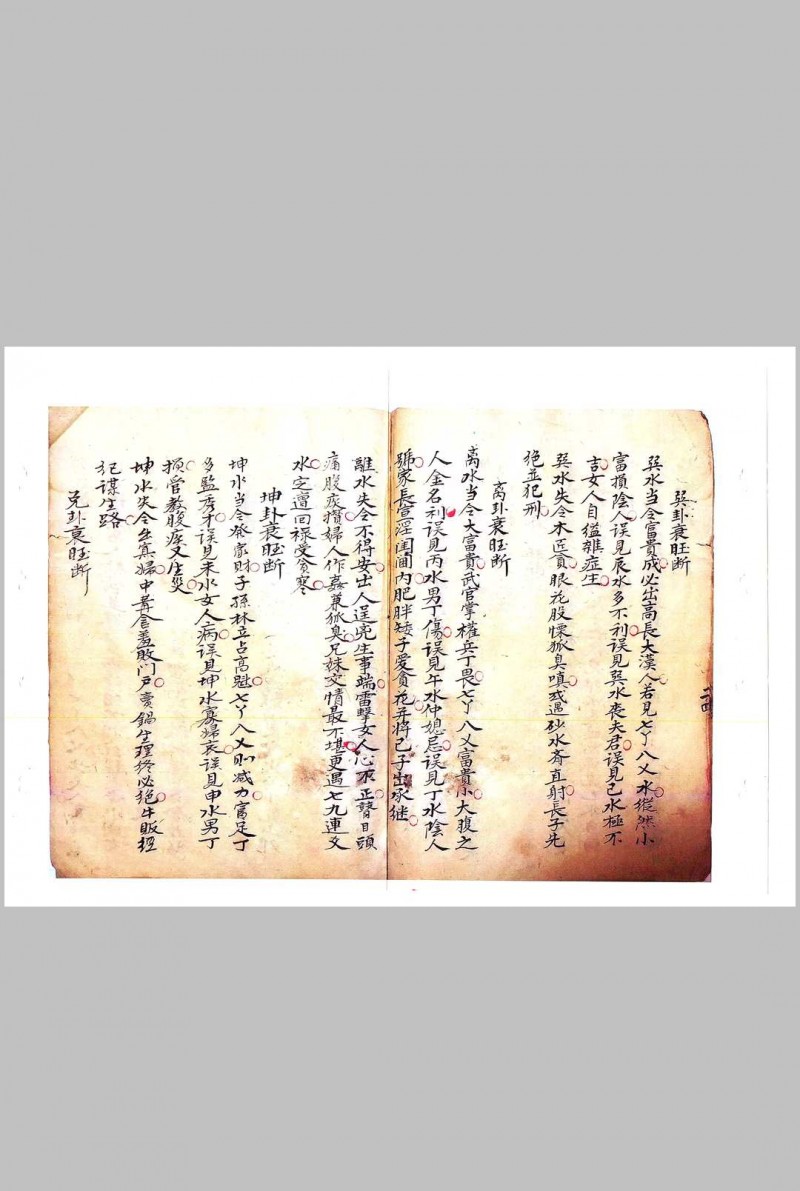 巽卦衰旺断
巽水当令富貴成必出高長大漢人若見七丫八乂水縱然小
富損陰人误見辰水多不利误見巽水喪夫君误見己水極不
吉女人自缢雜症生
巽水失令木匠貧眼花股慄狐臭嗔或遇砂水斉直射長子先
绝並犯刑
离卦衰旺断
离水当令大富貴武官掌權兵丁畏七丫八乂富貴小大腹之
人金名利误見丙水男丁傷误見午水仲媳忌误見丁水陰人
號家長宣淫闺阃内肥胖矮子爱貪花并将己子出承继
離水失令不得安出人逞兇生事端雷擊女人心不正瞽目頭
痛腹疾攢婦人作姦兼狐臭兄妹交情最不堪更遇七九連乂
水定遭回禄受貧寒
坤卦衰旺断
坤水当令發家財子孫林立占高魁七丫八乂则减力富足丁
多監秀才误見未水女人病误見坤水寡婦哀误見申水男丁
损管教腹疾又生災
坤水失令出寡婦中冓含羞敗门戶賣鍋生理终必绝牛販經
犯謀生路
兑卦衰旺断